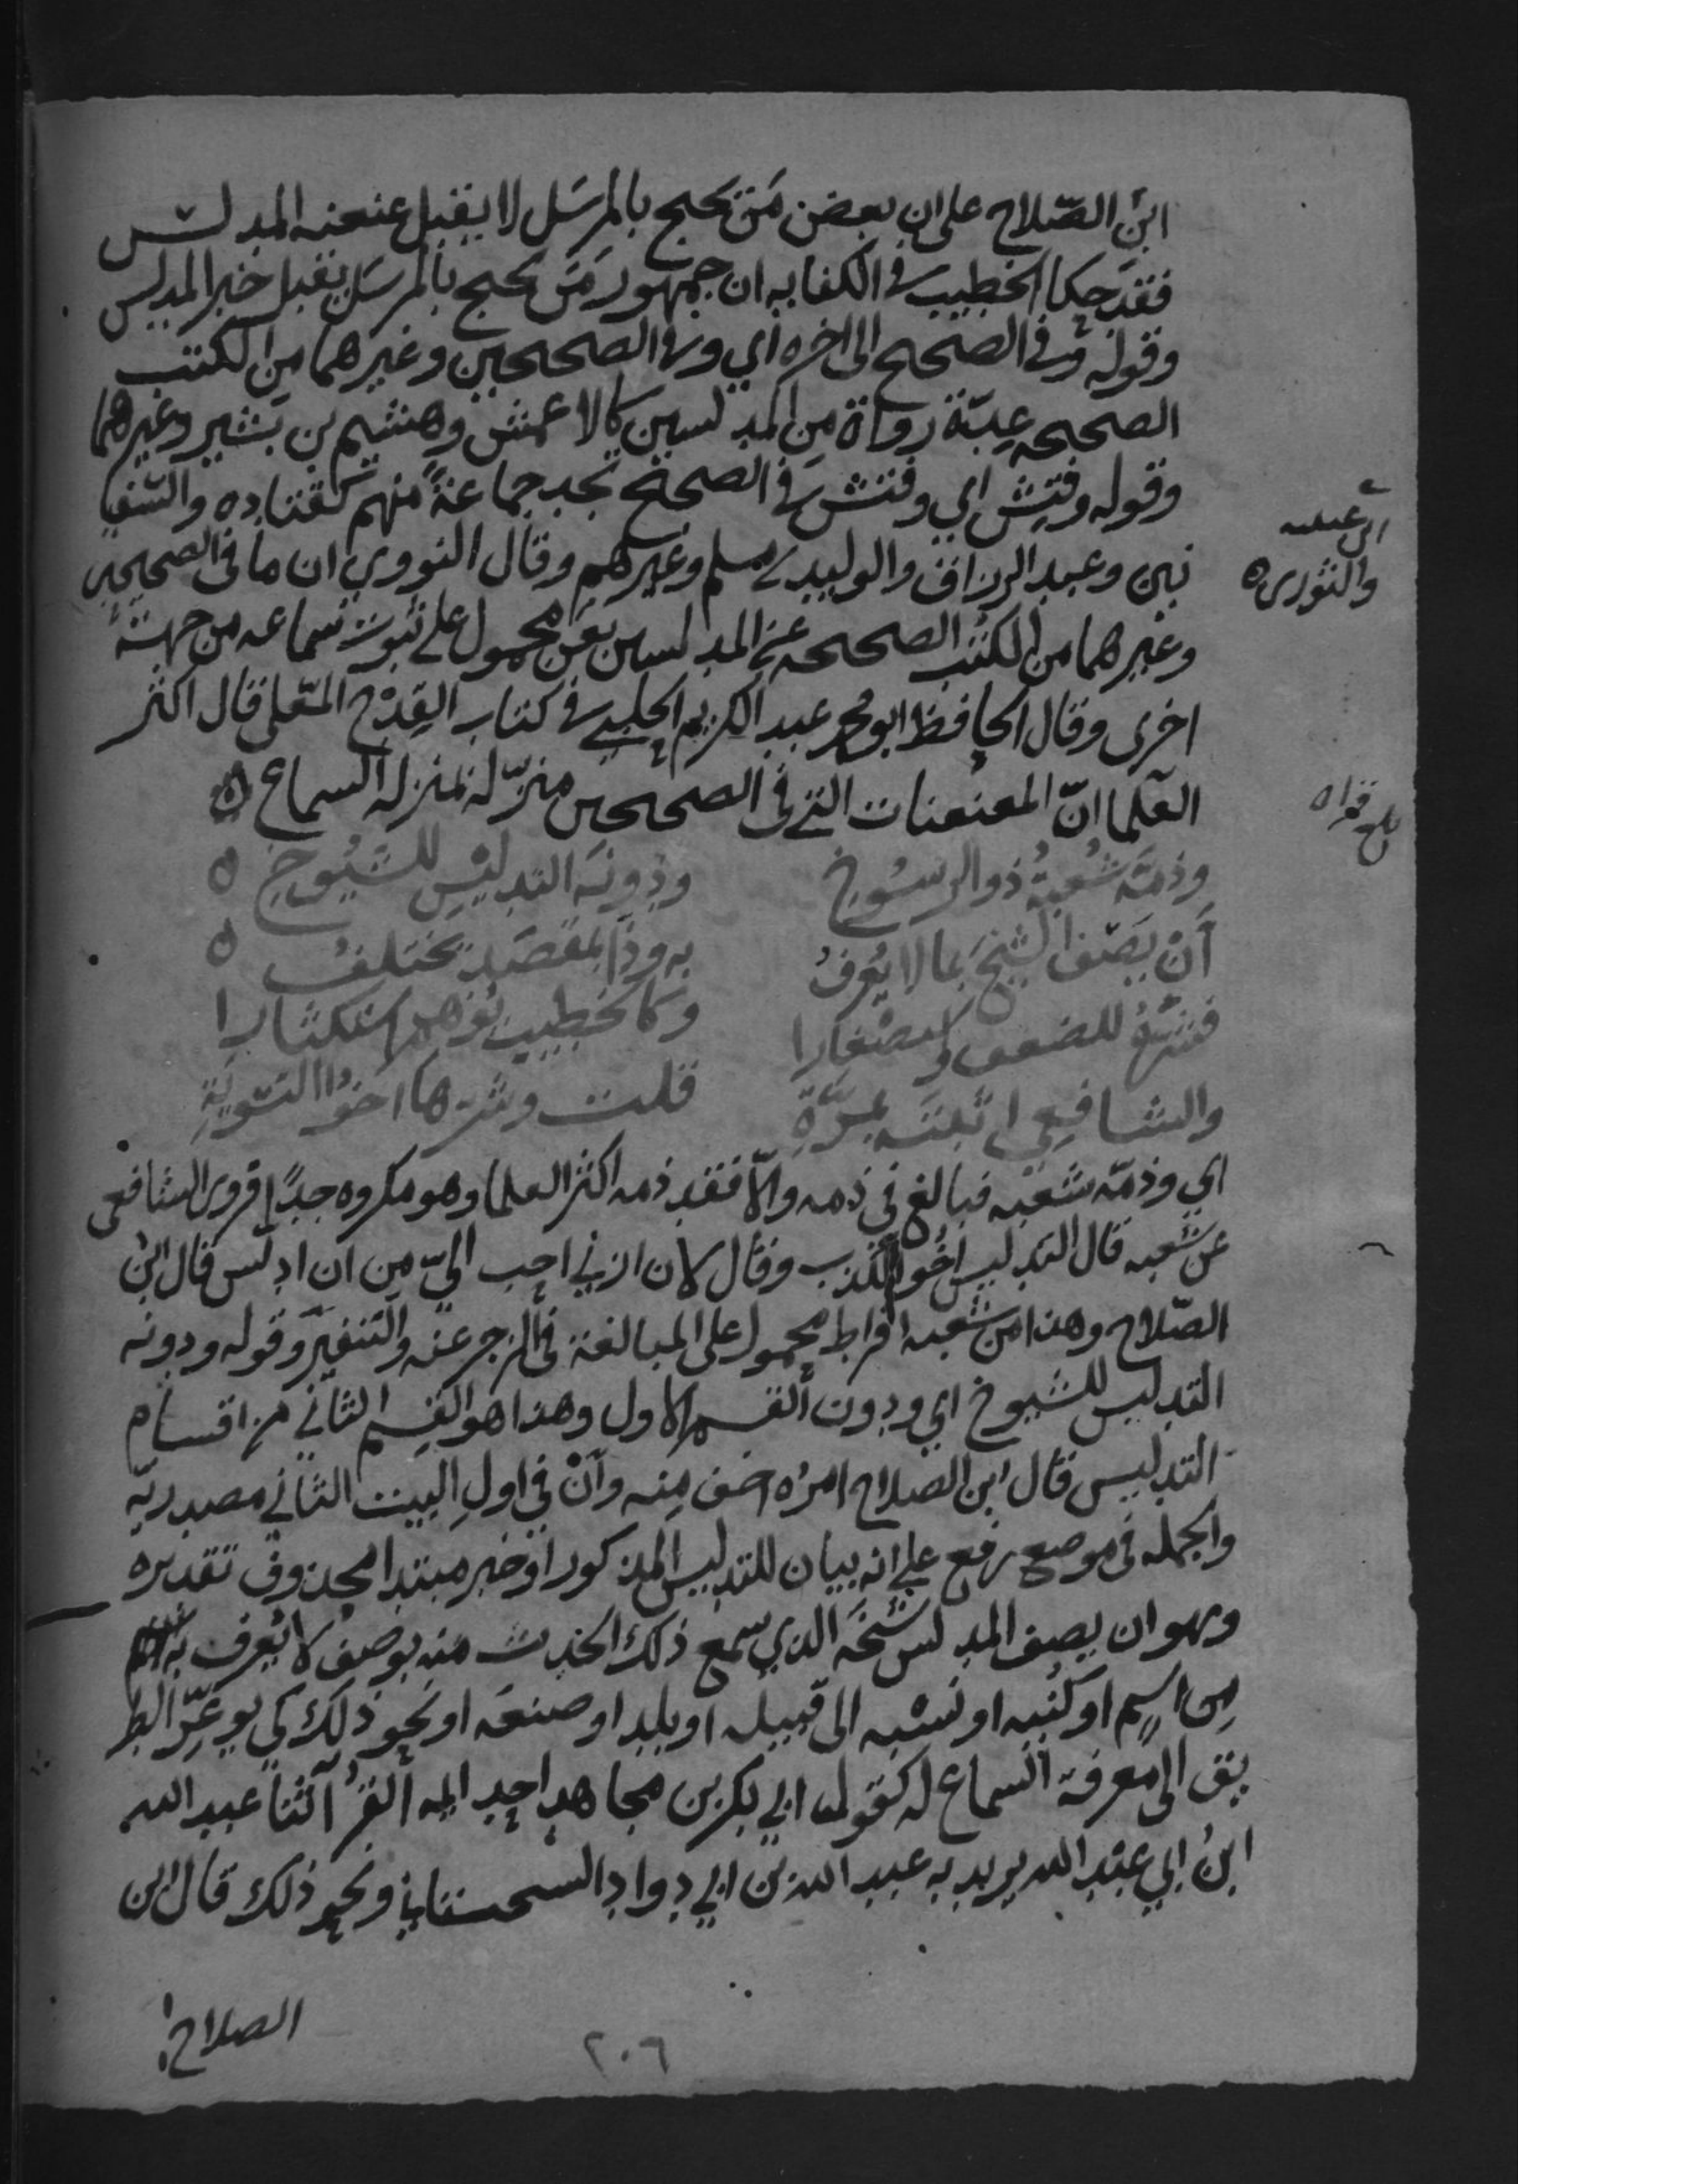 ابن الصّلاح على ان بعض مَن يحتج بالمرسَل لا يقبل عنعنه المدلس
فقد حكا الخطيب في الكفايه ان جمهور مَن يحتج بالمرسَل يقبل خبر المدلس
وقوله وفي الصحيح الى اخره اي وفي الصحيحين وغيرهما من الكتب
الصحيحه عِدّة رواة مِن المدلسين كالاعمش وهشيم بن بشير وغيرهما
وقوله وفتِش اي وفتش في الصحيح تجد جماعةً منهم كقتاده والسّفيا
نين وعبد الرزاق والوليد بن مسلم وغيرهم وقال النووي ان ما في الصحيحين
ابن عيينه
والثوري ه
وغيرهما من الكتب الصحيحه عن المدلسين بعَن محمول على ثبوت سماعه من جهة
اخرى وقال الحافظ ابو محمد عبد الكريم الحلبي في كتاب القِدْح المعَلى قال اكثر
العلما انّ المعنعنات التي في الصحيحين منزّلة بمنزله السماع ه
بلغ قراه
وذمّه شُعبةُ ذو الرسُوخ ودونَه التدليس للشيُوخ ه
أنْ يَصفَ الشيخَ بما لا يُعرفُ به وذا بمقصَد يختلفُ ه
فشرّهُ للضعف واستصْغارا وكالخطيب يُوهم استكثارا
والشافعي اثبتَه بمرّةِ قلت وشرّها اخُو التسويَةِ
اي وذمّه شعبه فبالغ في ذمه والّا فقد ذمه اكثر العلما وهو مكروه جدًا فروى الشافعي
عن شعبه قال التدليس اخُو الكذب وقال لان ازني احب اليّ مِن ان ادلس قال ابن
الصّلاح وهذا من شعبه افراط محمول على المبالغة في الزجر عنه والتنفيَر وقوله ودونه
التدليس للشيوخ اي ودون القسم الاول وهذا هو القسم الثاني من اقسام
التدليس قال ابن الصلاح امرُه اخف مِنه وأنْ في اولِ البيت الثاني مصدريّه
والجمله في موضع رفع على انه بيان للتدليس المذكور او خبر مبتدا محذوف تقديره
وهو ان يصف المدلس شيخَه الذي سمع ذلك الحديث منه بوصف لا يُعرف به
مِن اسم او كُنيه او نسْبه الى قبيله او بلد او صنعه او نحو ذلك كي يوعّر الطر
يق الى معرفة السماع له كقول ابي بكر بن مجاهد احد ايمه القرّاء ثنا عبد الله
ابنُ ابي عبْد الله يريد به عبد الله بن ابي دواد السجستاني ونحو ذلك قال ابن
الصلاح
٢٠٦